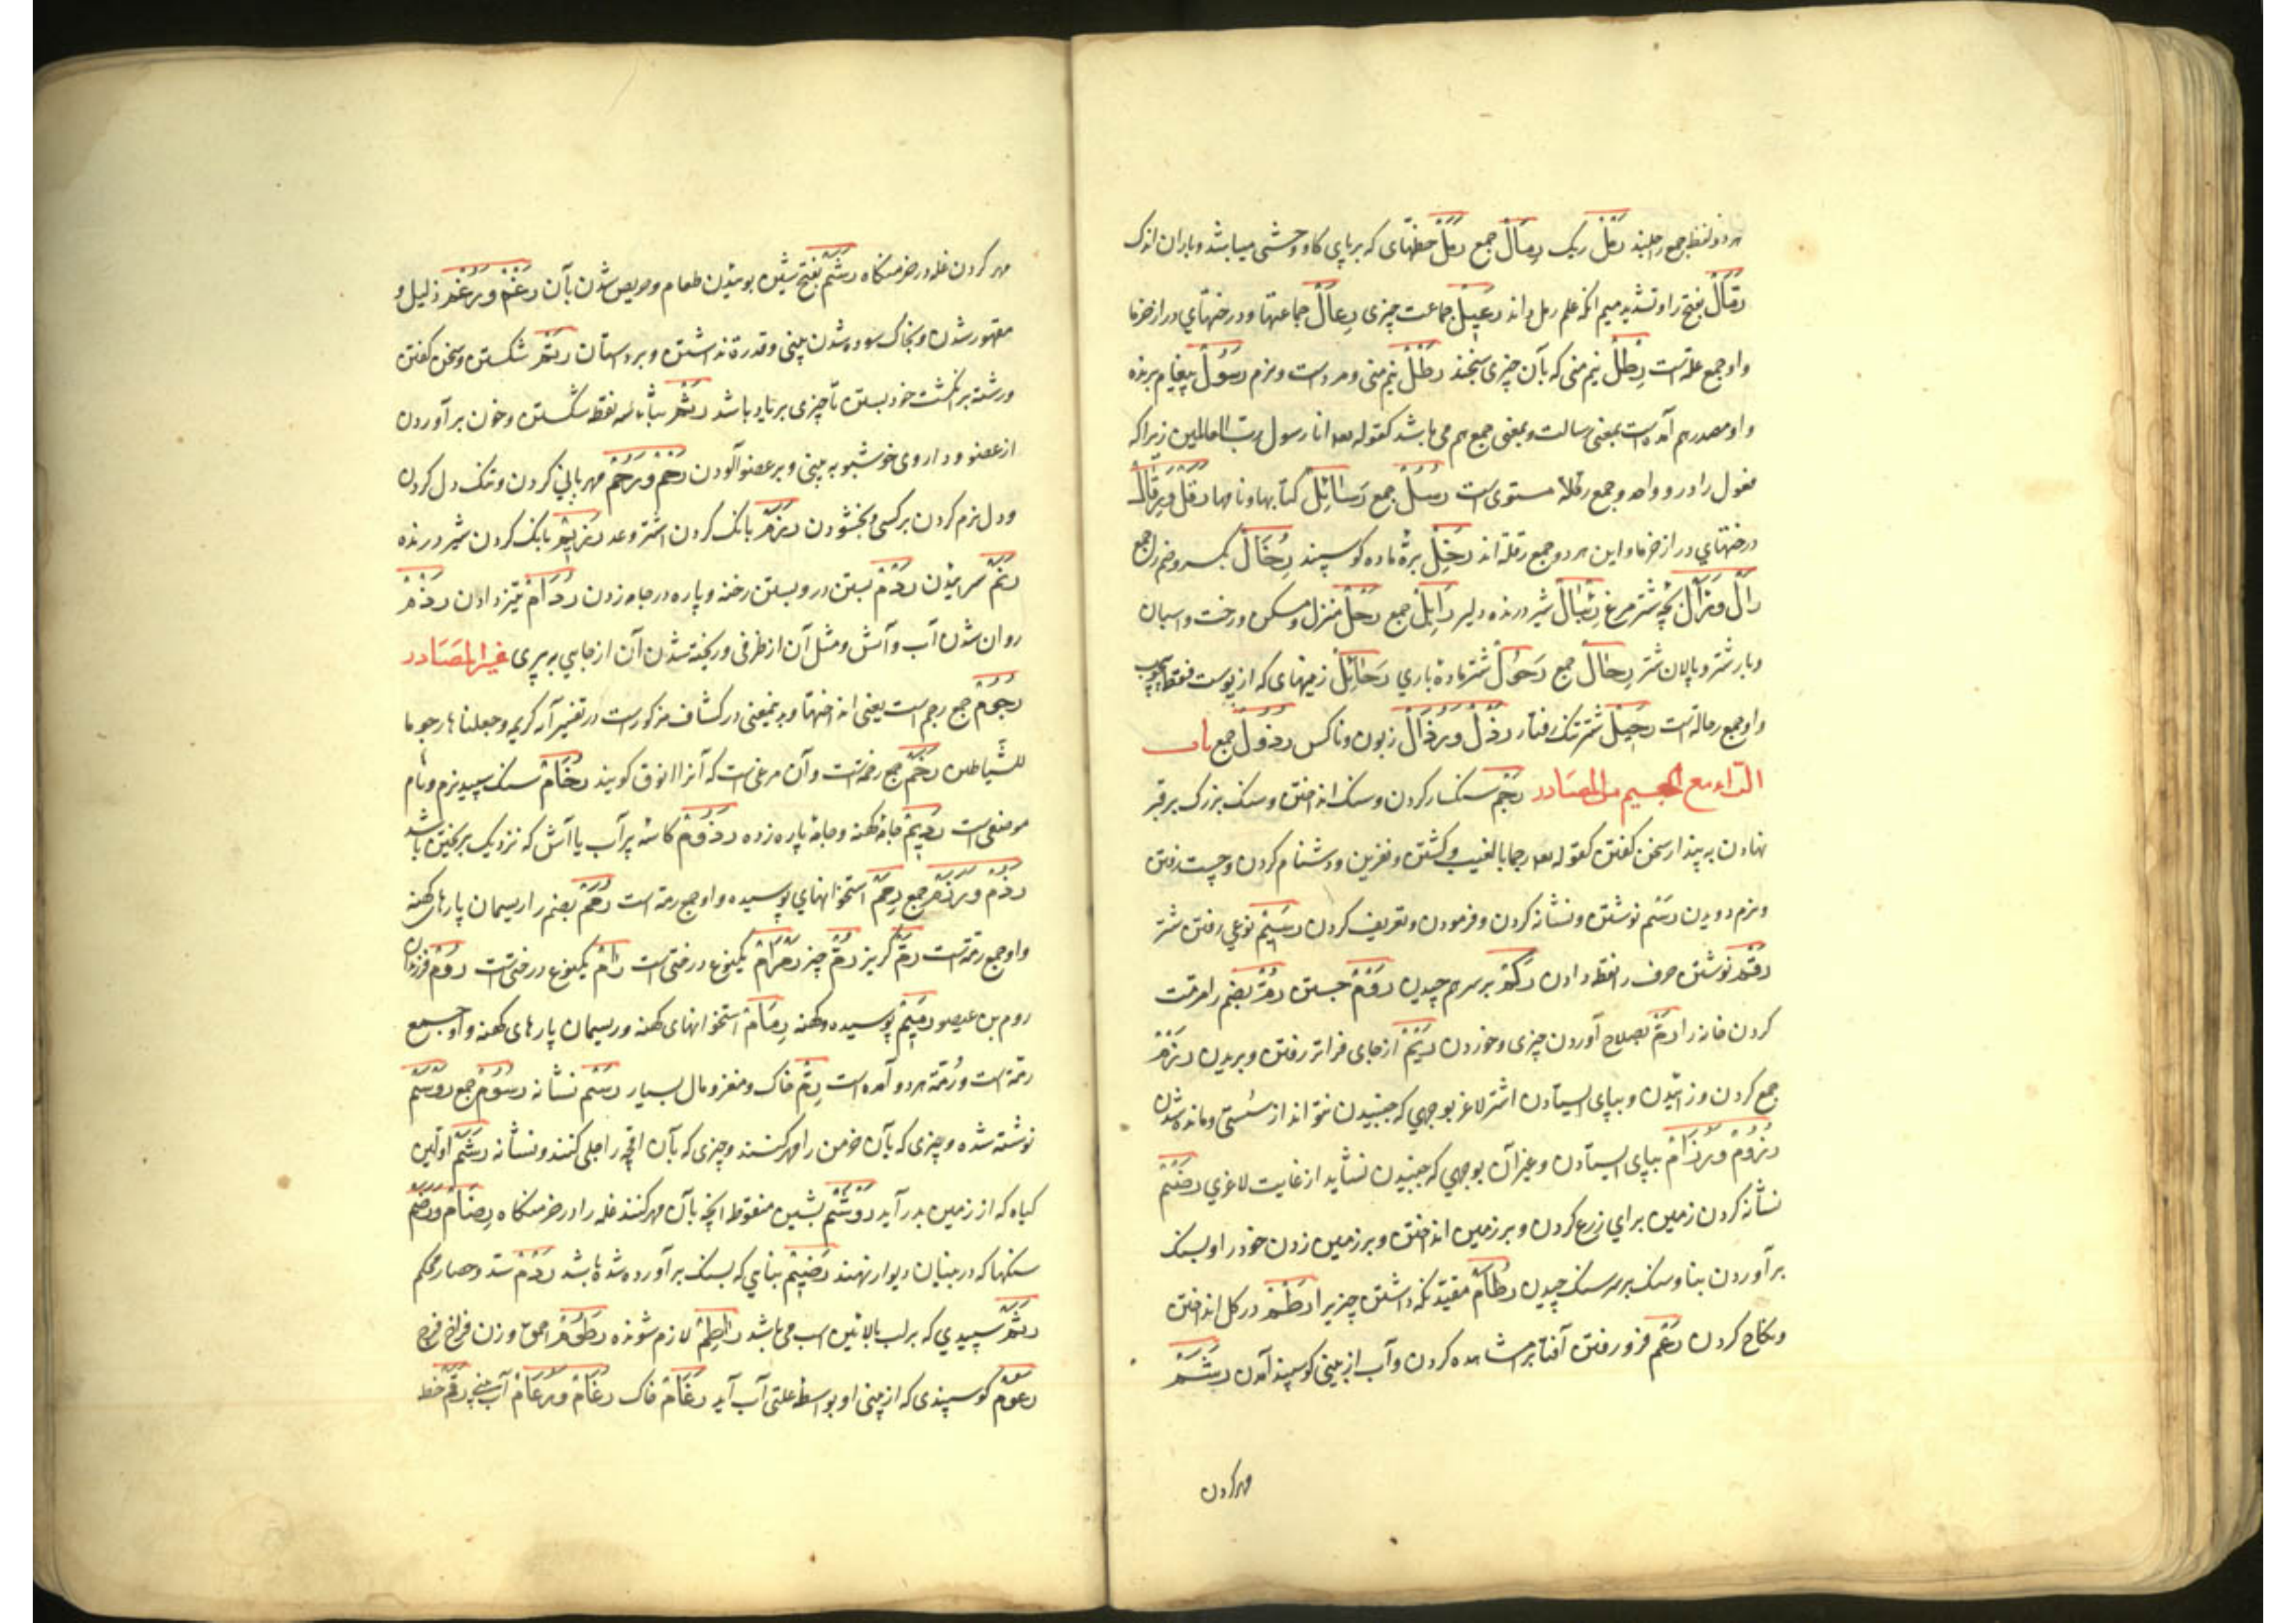 هر دو لفظ جمع راجلند رَمْل ریک رِمَالْ جمع رَمَلْ خطهای که بر پای کاو وحشی میباشد و باران اندک
رَمَّالْ بفتح را و تشدید میم انکه علم رمل داند رَعِیْلْ جماعت چیزی رِعَالْ جماعتها و درختهاي دراز خرما
و او جمع علتست رِطْلْ نیم منی که بآن چیزی سنجند رَطْلْ نیم منی و مرد سست و نرم رَسُوْلْ پیغام برنده
و او مصدر هم آمده است بمعنی رسالت و بمعنی جمع هم می باشد کقوله تعه انا رسول رب العالمین زیرا که
فعول را در و واحد و جمع مستوی است رُسُلْ جمع رَسَائِلْ کتابها و نامها رَقْلْ و رِقَالْ
درختهاي دراز خرما و این هر دو جمع رقلة اند رَخِلْ برۀ ماده کوسپند رُخَالْ بکسر و ضم را جمع
رَالْ و رَآلْ بچه شتر مرغ رِئْبَالْ شیر درنده و دلیر رَابِلْ جمع رَحْلْ منزل و مسکن و رخت و اسباب
و بار شتر و پالان شتر رِحَالْ جمع رَحُوْلْ شتر ماده باري رَحَائِلْ زینهای که از پوست فقط بیچوب
و او جمع رحالة است رَجِیْلْ شتر تنک رفتار رَذْلْ و رُذَالْ زبون و ناکس رُذُوْلْ جمع باب
الرّاء مع المیم من المصَادر رَجْمْ سنکسار کردن و سنک انداختن و سنک بزرک بر قبر
نهادن به پندار سخن کفتن کقوله تعه رجما بالغیب و کشتن و نفرین و دشنام کردن و چست رفتن
و نرم دویدن رَسْم نوشتن و نشانه کردن و فرمودن و تعریف کردن رَسِیْمْ نوعي رفتن شتر
رَقْمْ نوشتن حرف را نقطه دادن رَکْمْ بر سر هم چیدن رَوْمْ جستن رَمّ بضم را مرمت
کردن خانه را رَمّ بصلاح آوردن چیزی و خوردن رَیْمْ از جای فراتر رفتن و بریدن رَزْمْ
جمع کردن و زائیدن و بپای ایستادن اشتر لاغر بوجهي که جنبیدن نتواند از سستی و مانده شدن
رُزُوْمْ و رُزَامْ بپای ایستادن و غیر آن بوجهي که جنبیدن نشاید از غایت لاغري رَضْمْ
نشانه کردن زمین براي زرع کردن و بر زمین انداختن و بر زمین زدن خود را و بسنک
برآوردن بنا و سنک بر سر سنک چیدن رِطَامْ مقید نکه داشتن چیزیرا رَطْمْ در کل انداختن
و نکاح کردن رَغْم فرو رفتن آفتاب مشاهده کردن و آب از بینی کوسپند آمدن رَشْمْ
مهر کردن
مهر کردن غله در خرمنکاه رَشَمْ بفتح شین بوئیدن طعام و حریص شدن بآن رَغْمْ و رُغْم ذلیل و
مقهور شدن و بخاک سوده شدن بینی و قدرة نداشتن و بر دستان رَتْم شکستن و سخن کفتن
و رشته بر انکشت خود بستن تا چیزی بر یاد باشد رَثْم بثاء سه نقطه شکستن و خون برآوردن
از عضو و داروی خوشبو به بینی و بر عضو آلودن رَحْمْ و رُحْمْ مهربانی کردن و تنک دل کردن
و دل نرم کردن بر کسی و بخشودن رَزَمْ بانک کردن اشتر و رعد رَزِیْم بانک کردن شیر درنده
رَدْمْ بستن در و بستن رخنه و پاره در جامه زدن رُدَامْ تیز دادن رَذْمْ
روان شدن آب و آتش و مثل آن از ظرفی و ریخته شدن آن از جایي به پري غیر المصَادر
رُجُوْمْ جمع رجم است یعنی انداختها و بدینمعنی در کشاف مذکور است در تفسیر آیه کریمه وجعلنا ها رجوما
للشیاطین رَخَمْ جمع رخمة است و آن مرغی است که آنرا انوق کویند رُخَامْ سنک سپید نرم و نام
موضعی است رَدِیْمْ جامۀ کهنه و جامۀ پاره زده رَذُوْمْ کاسۀ پر آب یا آش که نزدیک بریختن باشد
رُذُمْ و رَذَمْ جمع رِمَمْ استخوانهاي پوسیده و او جمع رمة است رُمَمْ بضم را ریسمان پارهای کهنه
و او جمع رمّة است رُمّ کریز رَمّ چیز رَمْرَامْ یکنوع درختی است رَامْ یکنوع درختی است رُوْمْ فرزندان
روم بن عیصو رَمِیْمْ پوسیده و کهنه رِمَامْ استخوانهای کهنه و ریسمان پارهای کهنه و او جمع
رمّة است و رُمّة هر دو آمده است رِمّ خاک و مغز و مال بسیار رَسْم نشانه رُسُوْمْ جمع رَوْسَمْ
نوشته شده و چیزی که بآن خرمن را مهر کنند و چیزی که بآن اقچه را جلی کنند و نشانه رَشَمْ اولین
کیاه که از زمین بدر آید رَوْشَمْ بشین منقوط انچه بآن مهر کنند غله را در خرمنکاه رِضَامْ و رَضْمْ
سنکها که در بنیان دیوار نهند رَضِیْمْ بنایي که بسنک برآورده شده باشد رَدْمْ سد و حصار محکم
رَثَمْ سپیدي که بر لب بالائین اسب می باشد رَاطِمْ لازم شونده رَطُوْمْ احمق و زن فراخ فرج
رَعُوْمْ کوسپندی که از بینی او بواسطه علتی آب آید رَغَامْ خاک رُغَامْ و رُعَامْ آب بینی رَقْم خط